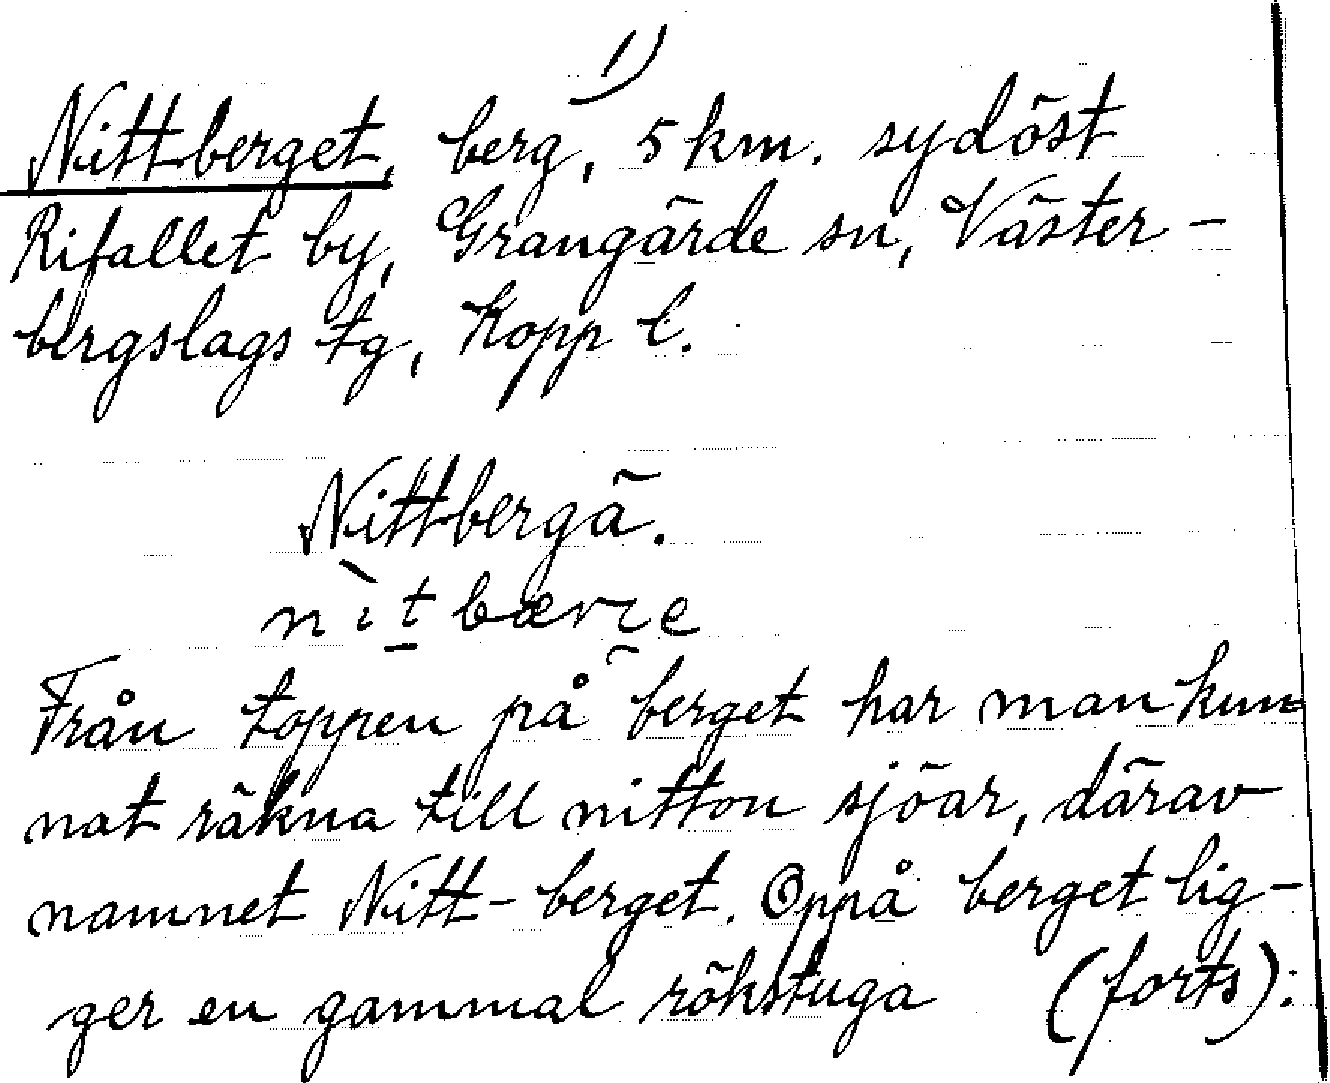 1)
Nittberget, berg, 5 km. sydöst
Rifallet by, Grangärde sn, Väster-
bergslags tg, Kopp l.
Nittbergä.
Från toppen på berget har man kun-
nat räkna till nitton sjöar, därav
namnet Nitt-berget. Oppå berget lig-
ger en gammal rökstuga (forts):